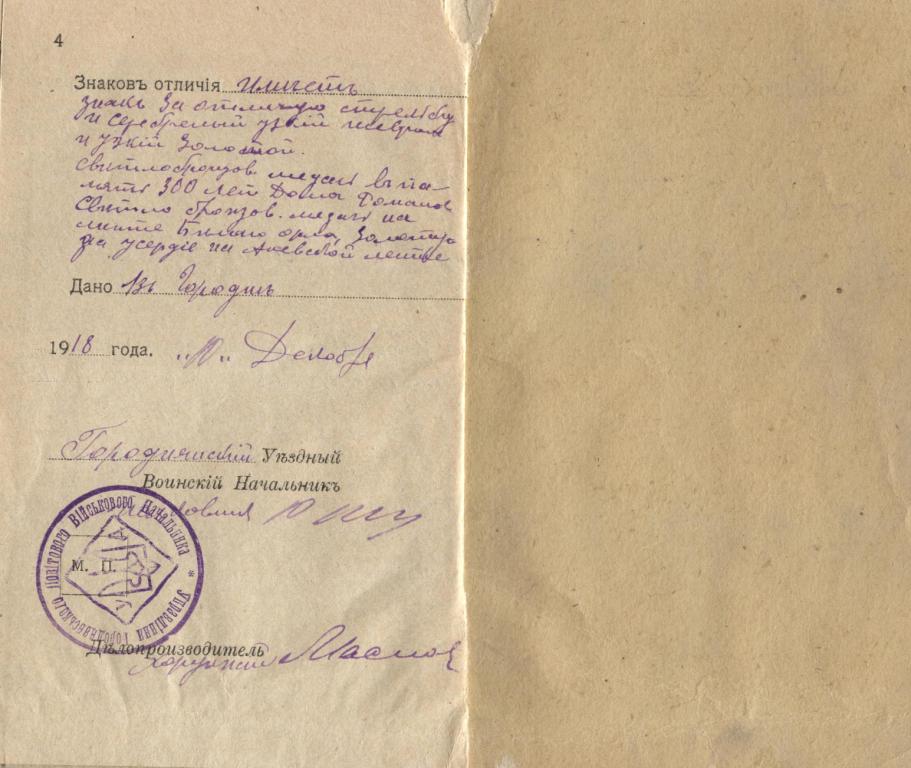 4
Знаковъ отличія имѣетъ
знакъ За отличную стрельбу
и серебреный узкій шевронъ
и узкій Золотой.
Свѣтлобронзов. медаль въ па-
мять 300 лет Дома Романов
Свѣтло бронзов. медаль на
ленте Белаго орла, Золотую
за усердіе на Аневской ленте
Дано въ Городнѣ
1918 года. „10„ Декабря
Городнянскій Уѣздный
Воинскій Начальникъ
М. П.
Управління Городнянського Повітового Військового Начальника *
Дѣлопроизводитель
Хорунжій Маслов